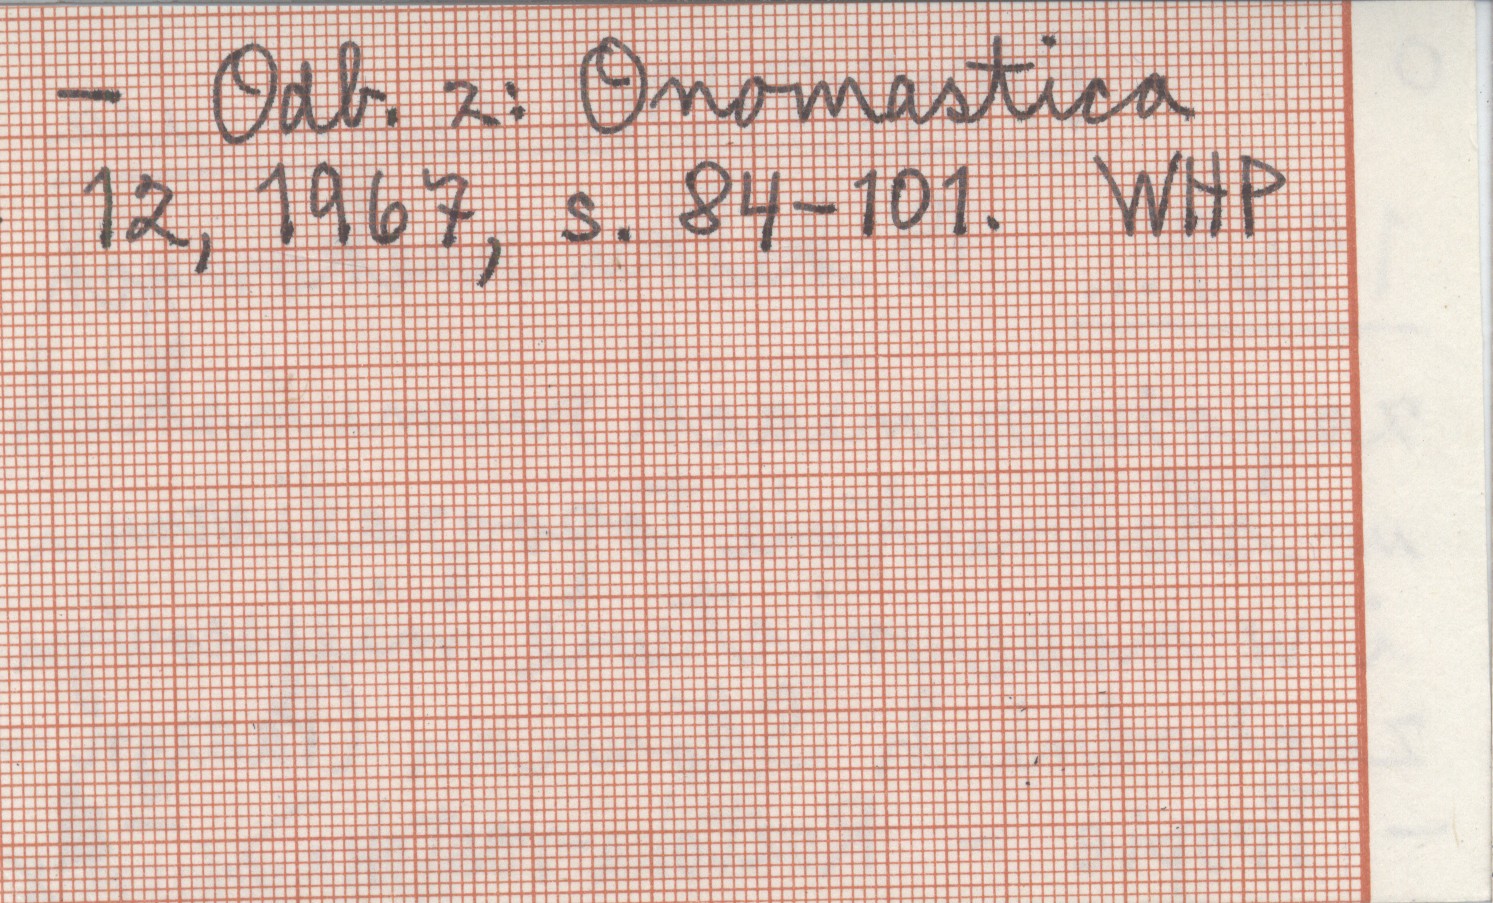 – Odb. z: Onomastica
12, 1967, s. 84–101. WHP